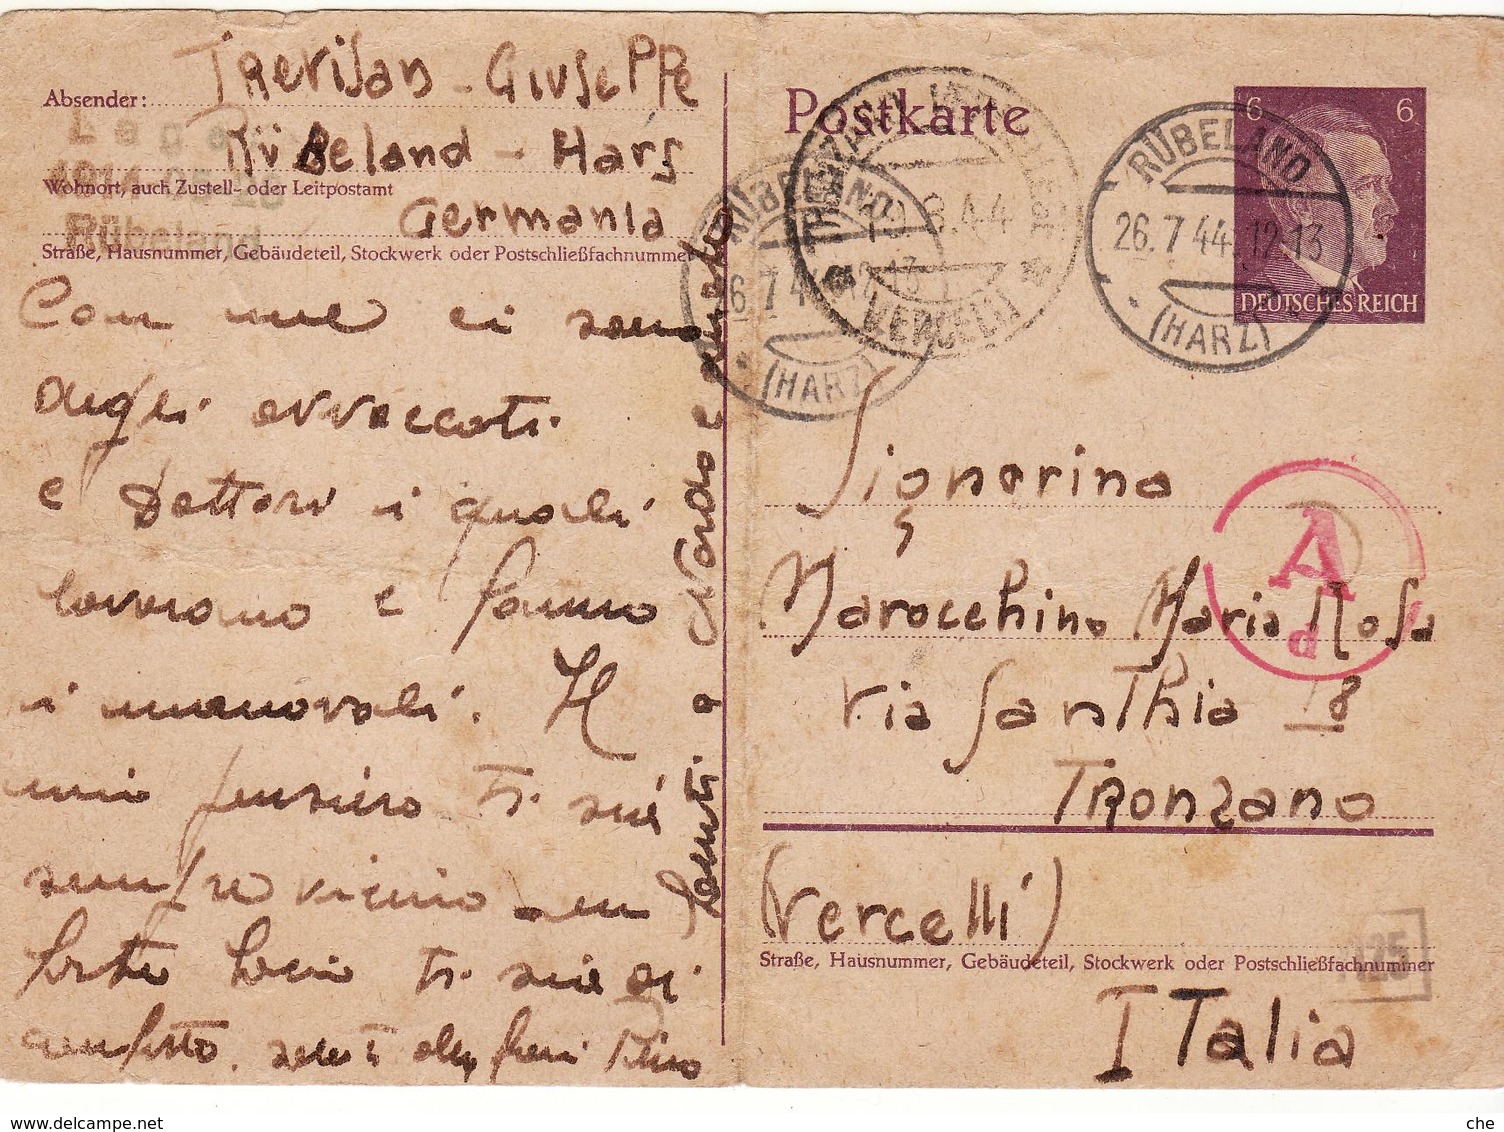 Absender: Trevisan - Giuseppe
Rübeland - Hars
Wohnort, auch Zustell- oder Leitpostamt
Germania
Straße, Hausnummer, Gebäudeteil, Stockwerk oder Postschließfachnummer
Lager
Rübeland
Con me ci sono
degli avvoccati
e Dottori i quali
lavorano e fanno
i manovali. Il
mio pensiero ti sia
sempre vicino un
forte bacio ti sia di
conforto. Pino
Nardo e
Postkarte
RÜBELAND
26.7.44.12-13
(HARZ)
RÜBELAND
26.7.44.12-13
(HARZ)
TRONZANO VERCELLESE
8.44
VERCELLI
6 6
DEUTSCHES REICH
Signorina
Marocchino Maria Rosa
via Santhia 18
Tronzano
(Vercelli)
Straße, Hausnummer, Gebäudeteil, Stockwerk oder Postschließfachnummer
Italia
A
d
125
www.delcampe.net
che